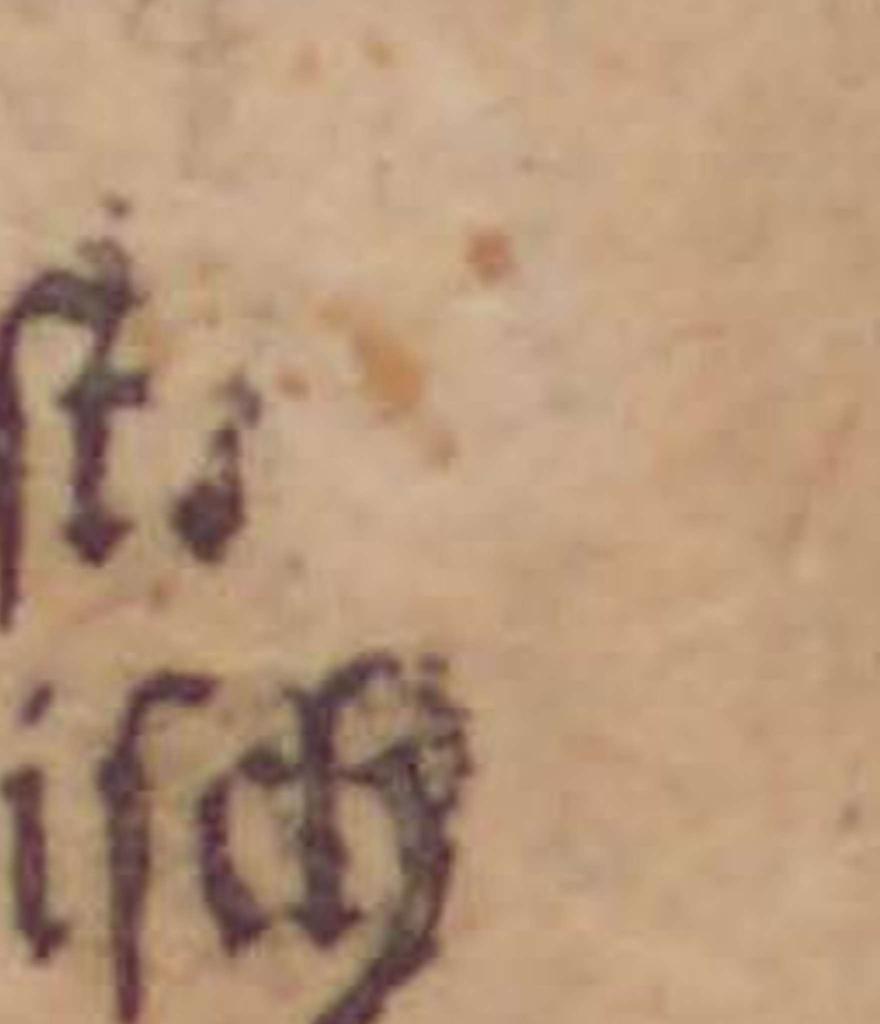 ſt,
iſch